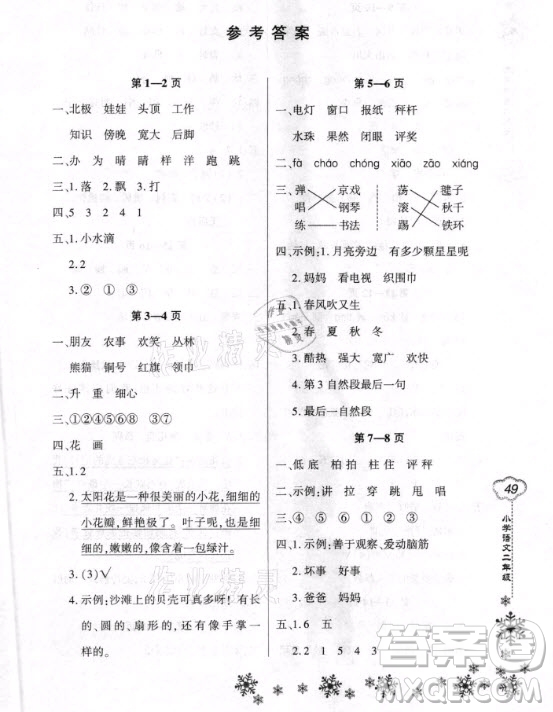 参考答案
第1—2页
一、北极 娃娃 头顶 工作
知识 傍晚 宽大 后脚
二、办 为 晴 睛 样 洋 跑 跳
三、1.落 2.飘 3.打
四、5 3 2 4 1
五、1.小水滴
2.2
3.② ① ③
第3—4页
一、朋友 农事 欢笑 丛林
熊猫 铜号 红旗 领巾
二、升 重 细心
三、①②④⑤⑥⑧ ③⑦
四、花 画
五、1.2
2.太阳花是一种很美丽的小花,细细的
小花瓣,鲜艳极了。叶子呢,也是细
细的,嫩嫩的,像含着一包绿汁。
3.(3)√
4.示例:沙滩上的贝壳可真多呀!有长
的、圆的、扇形的,还有像手掌
一样的。
第5—6页
一、电灯 窗口 报纸 秤杆
水珠 果然 闭眼 评奖
二、fà cháo chóng xiāo zāo xīng
三、弹 京戏 荡 毽子
唱 钢琴 滚 秋千
练 书法 踢 铁环
四、示例:1.月亮旁边 有多少颗星星呢
2.妈妈 看电视 织围巾
五、1.春风吹又生
2.春 夏 秋 冬
3.酷热 强大 宽广 欢快
4.第3自然段最后一句
5.最后一自然段
第7—8页
一、低 底 柏 拍 柱 住 评 秤
二、示例:讲 拉 穿 跳 甩 唱
三、④ ⑤ ⑥ ① ② ③
四、1.示例:善于观察、爱动脑筋
2.坏事 好事
3.爸爸 妈妈
五、1.6 五
2.2 1 5 4 3
49
小学语文二年级
作业精灵
作业精灵
答案圈
MXQE.COM